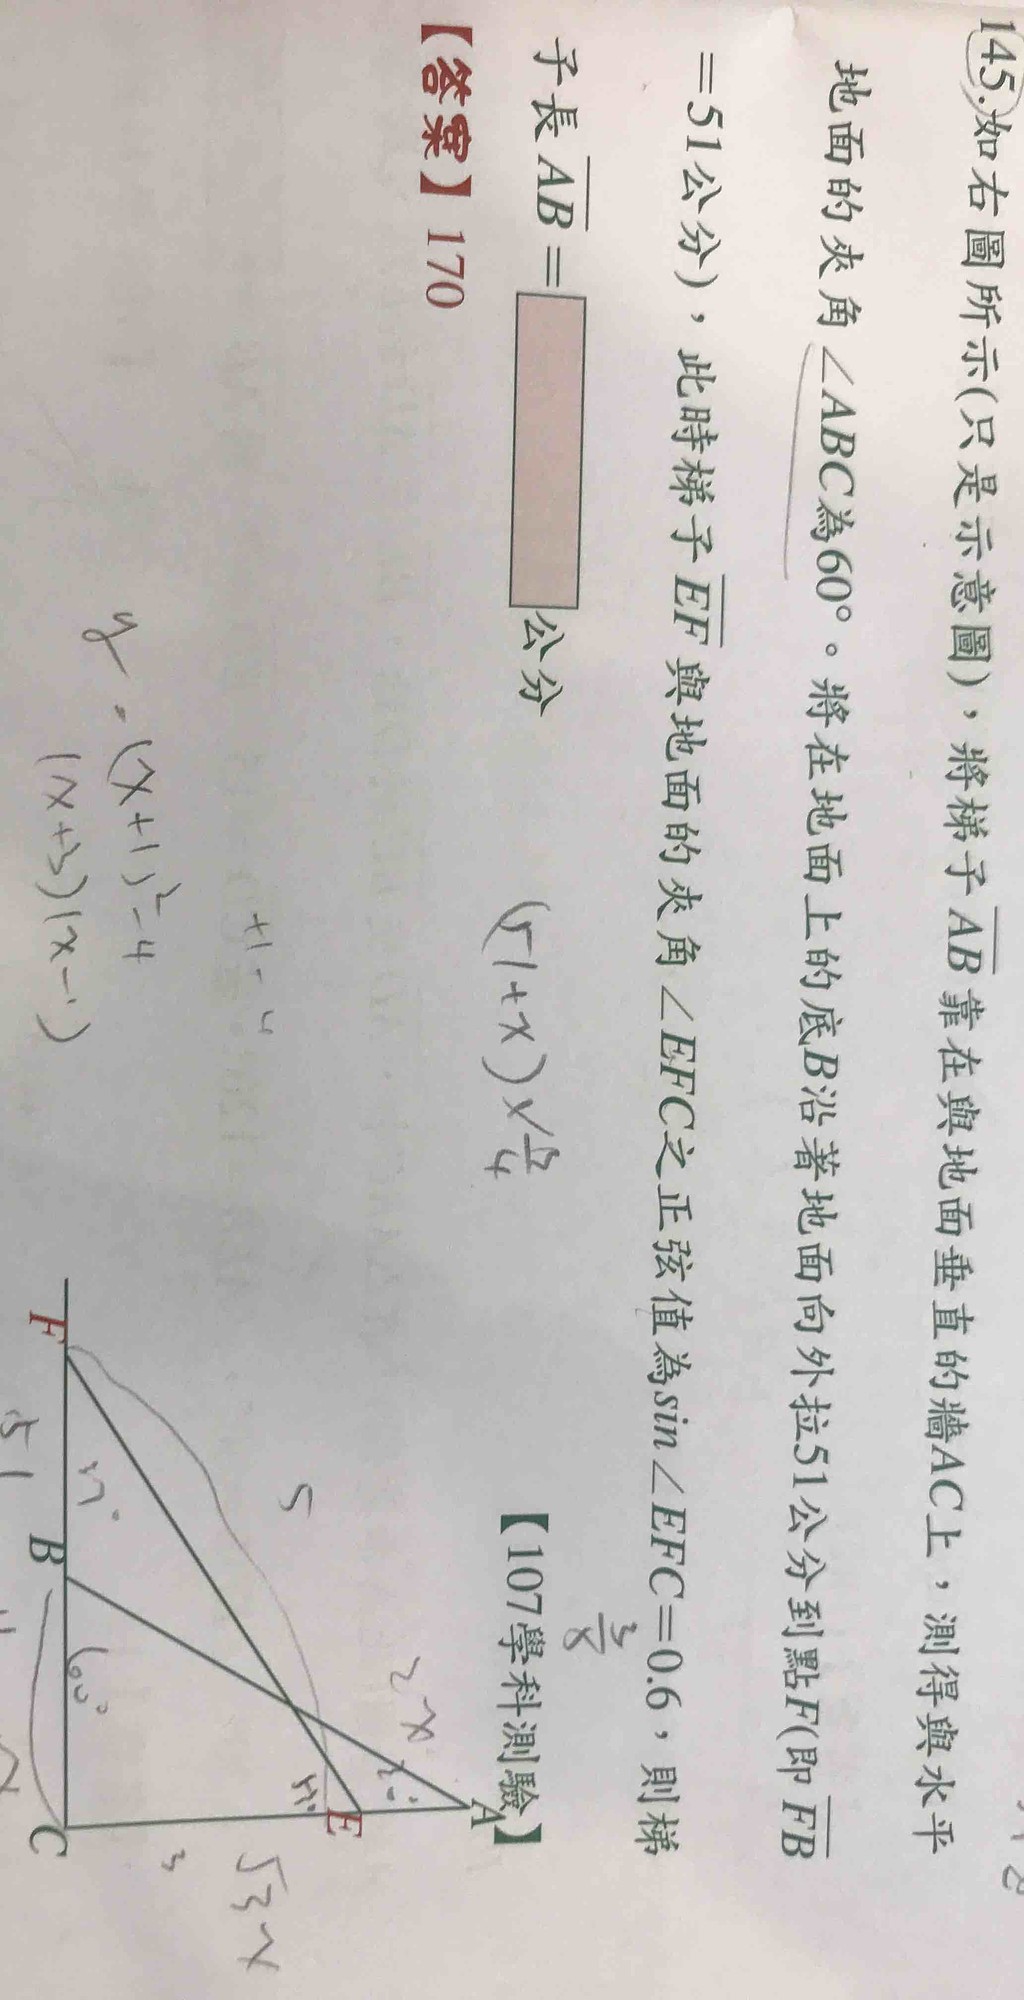 145.如右圖所示(只是示意圖)，將梯子AB靠在與地面垂直的牆AC上，測得與水平
地面的夾角∠ABC為60°。將在地面上的底B沿著地面向外拉51公分到點F(即FB
=51公分)，此時梯子EF與地面的夾角∠EFC之正弦值為sin∠EFC=0.6，則梯
子長AB=
公分
【107學科測驗】
【答案】170
(51+x)×
4
3
5
2x
A
E
37°
F
B
60°
C
51
3
√3x
y=(x+1)²-4
(x+3)(x-1)